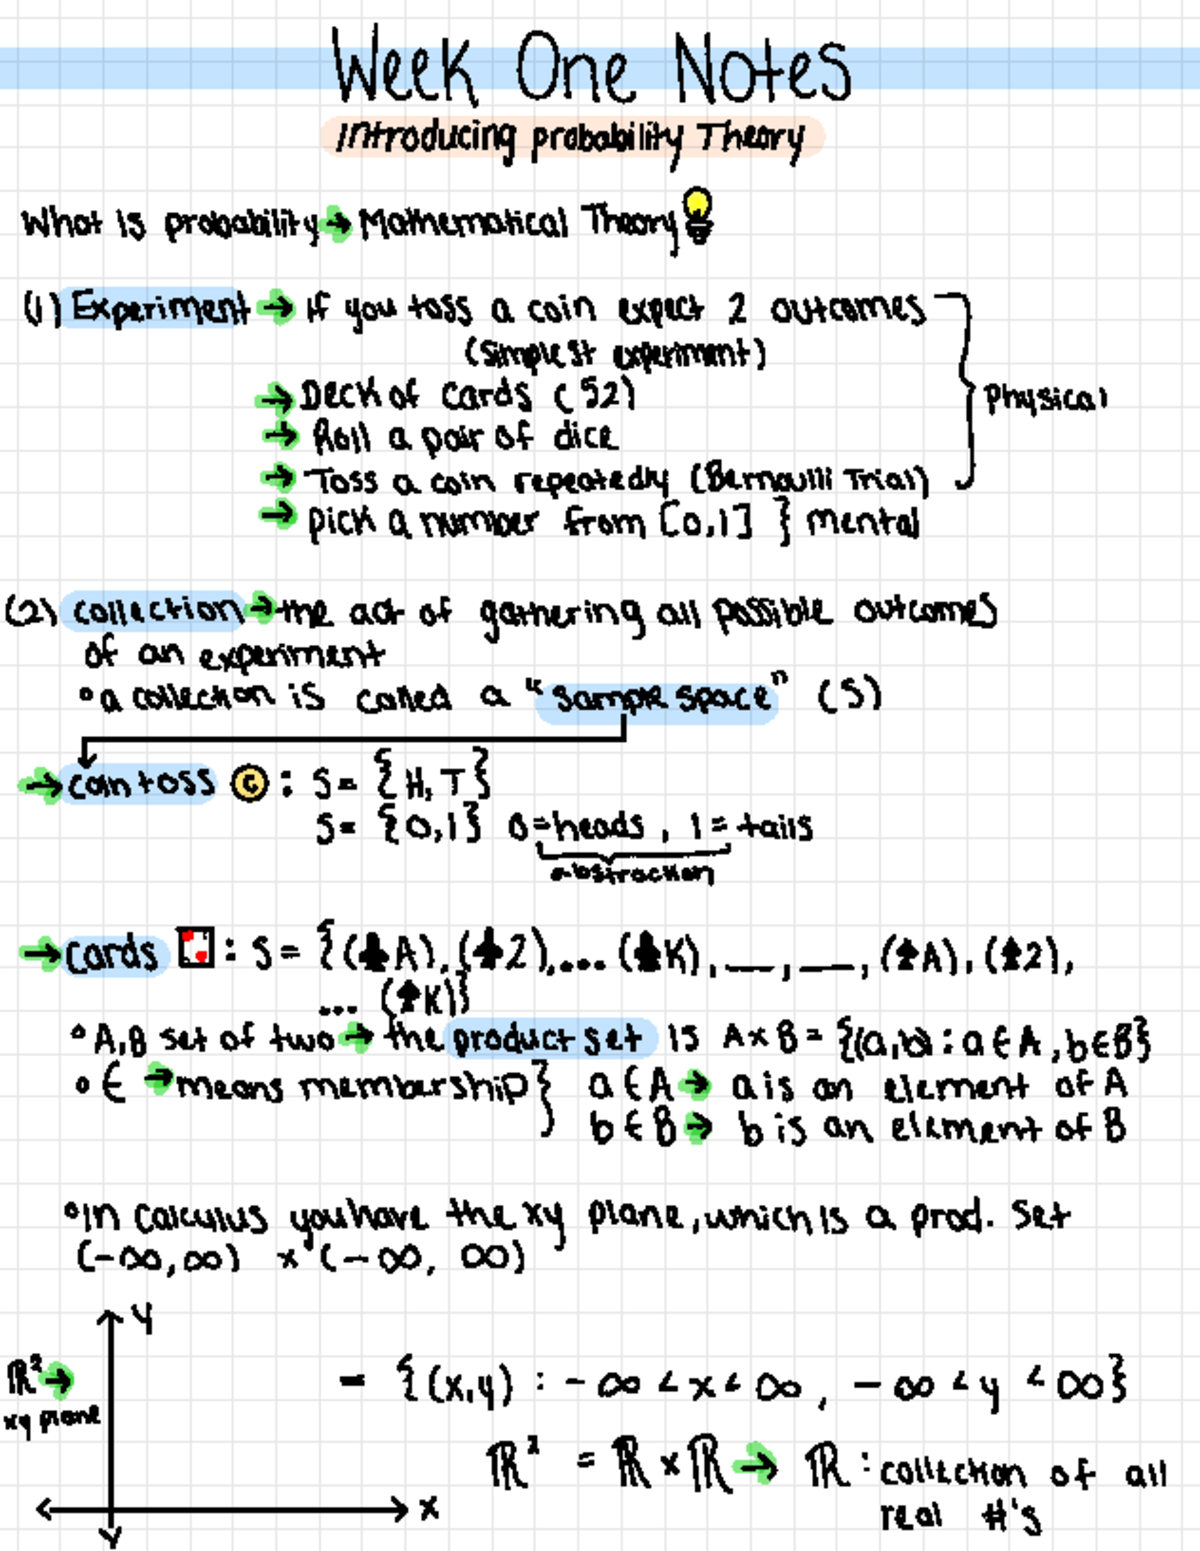 Week One Notes
Introducing probability Theory
What is probability → Mathematical Theory
(1) Experiment → if you toss a coin expect 2 outcomes
(simplest experiment)
→ Deck of cards (52)
→ Roll a pair of dice
→ Toss a coin repeatedly (Bernoulli Trial)
Physical
→ pick a number from [0,1] } mental
(2) collection → the act of gathering all possible outcomes
of an experiment
° a collection is called a "sample space" (S)
→ coin toss C : S = {H, T}
S = {0,1} 0=heads, 1= tails
abstraction
→ cards : S = {(♣A), (♣2), ... (♣K), __, __, (♠A), (♠2),
... (♠K)}
° A,B set of two → the product set is A x B = {(a,b) : a ∈ A, b ∈ B}
° ∈ → means membership} a ∈ A → a is an element of A
b ∈ B → b is an element of B
° In calculus you have the xy plane, which is a prod. set
(-∞,∞) x (-∞, ∞)
Y
ℝ² →
xy plane
= {(x,y) : -∞ < x < ∞, -∞ < y < ∞}
ℝ² = ℝ x ℝ → ℝ : collection of all
real #'s
X